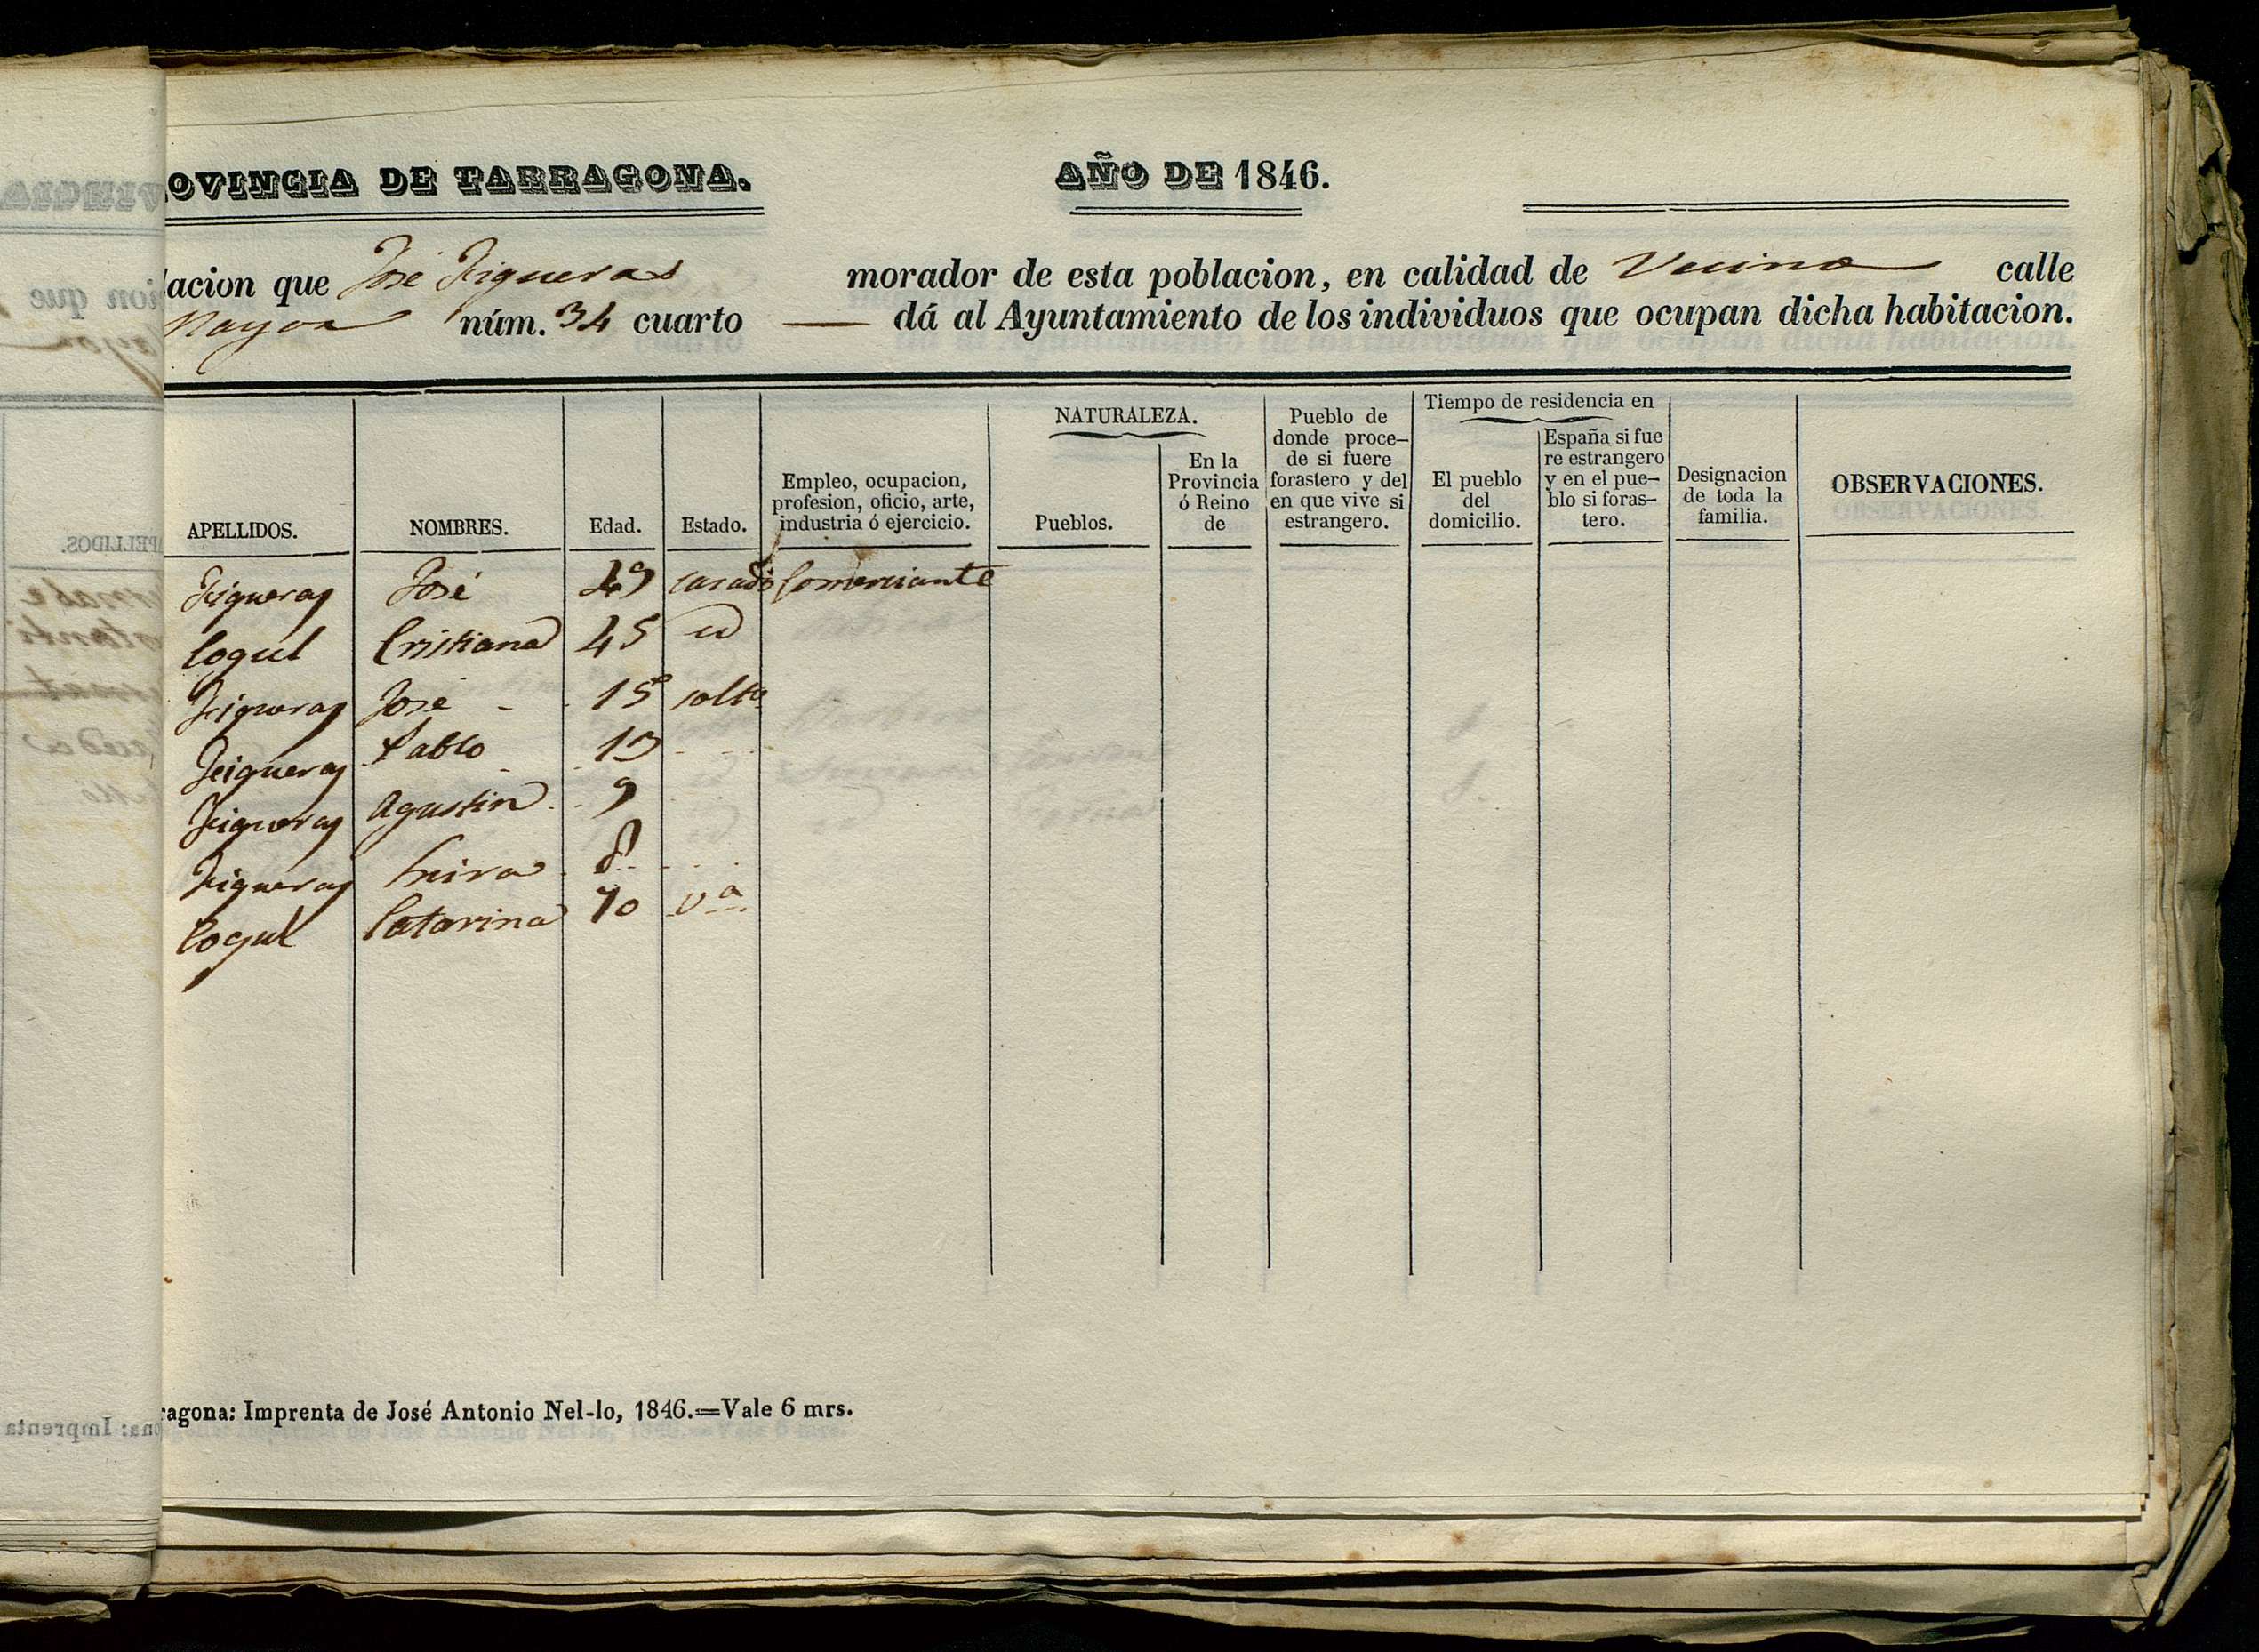 OVINCIA DE TARRAGONA. AÑO DE 1846.
lacion que José Figueras morador de esta poblacion, en calidad de Vecino calle
Mayor núm. 34 cuarto — dá al Ayuntamiento de los individuos que ocupan dicha habitacion.
APELLIDOS.
NOMBRES.
Edad.
Estado.
Empleo, ocupacion,
profesion, oficio, arte,
industria ó ejercicio.
NATURALEZA.
Pueblos.
En la
Provincia
ó Reino
de
Pueblo de
donde proce-
de si fuere
forastero y del
en que vive si
estrangero.
Tiempo de residencia en
El pueblo
del
domicilio.
España si fue
re estrangero
y en el pue-
blo si foras-
tero.
Designacion
de toda la
familia.
OBSERVACIONES.
Figueras José 49 casado Comerciante
Cogul Cristiana 45 id
Figueras José 15 solto
Figueras Pablo 13
Figueras Agustin 9
Figueras 8
Cogul Catarina 70 va
ragona: Imprenta de José Antonio Nel-lo, 1846.=Vale 6 mrs.